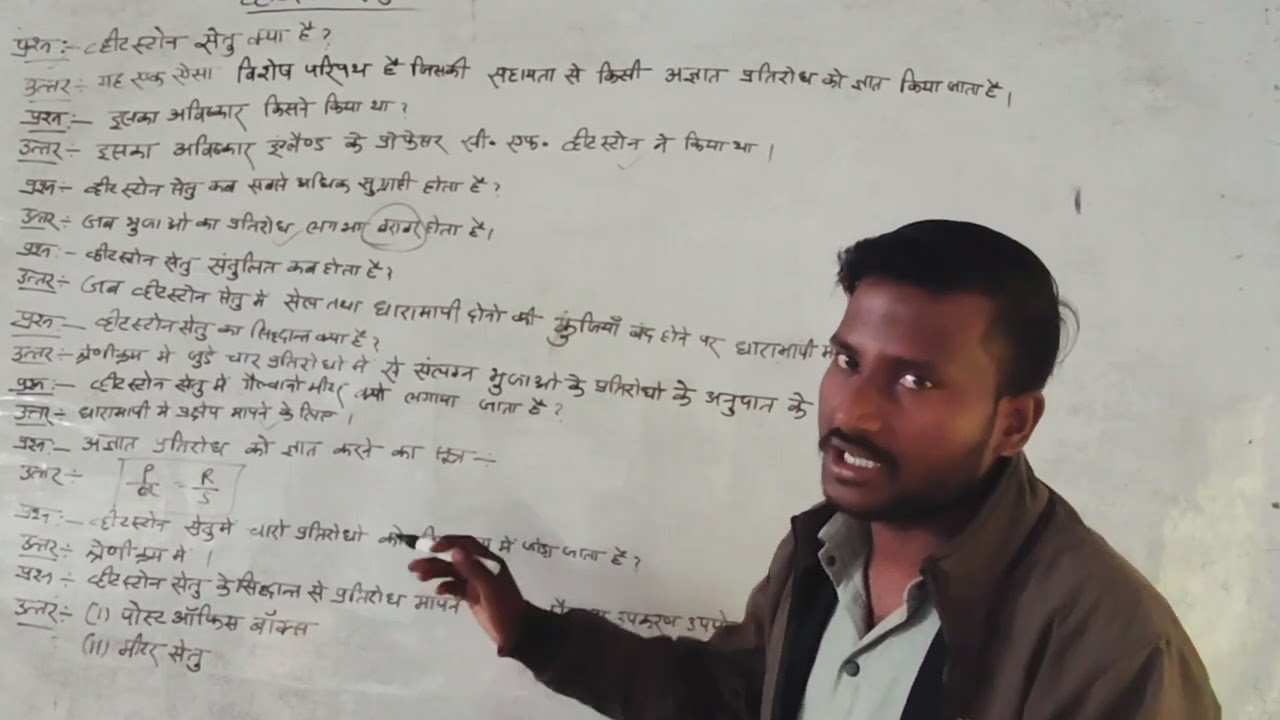 प्रश्न :- व्हीटस्टोन सेतु क्या है ?
उत्तर :- यह एक ऐसा विशेष परिपथ है जिसकी सहायता से किसी अज्ञात प्रतिरोध को ज्ञात किया जाता है।
प्रश्न :- इसका अविष्कार किसने किया था ?
उत्तर :- इसका अविष्कार इंग्लैण्ड के प्रोफेसर सी. एफ. व्हीटस्टोन ने किया था ।
प्रश्न :- व्हीटस्टोन सेतु कब सबसे अधिक सुग्राही होता है ?
उत्तर :- जब भुजाओ का प्रतिरोध लगभग बराबर होता है।
प्रश्न :- व्हीटस्टोन सेतु संतुलित कब होता है ?
उत्तर :- जब व्हीटस्टोन सेतु मे सेल तथा धारामापी दोनो की कुंजियाँ बंद होने पर धारामापी मे
प्रश्न :- व्हीटस्टोन सेतु का सिद्धान्त क्या है ?
उत्तर :- श्रेणीक्रम मे जुडे चार प्रतिरोधो मे से संलग्न भुजाओ के प्रतिरोधो के अनुपात के
प्रश्न :- व्हीटस्टोन सेतु मे गैल्वानोमीटर क्यो लगाया जाता है ?
उत्तर :- धारामापी मे प्रक्षेप मापने के लिए ।
प्रश्न :- अज्ञात प्रतिरोध को ज्ञात करने का सूत्र :-
उत्तर :- P/Q = R/S
प्रश्न :- व्हीटस्टोन सेतु मे चारो प्रतिरोधो को मे जोडा जाता है ?
उत्तर :- श्रेणीक्रम मे ।
प्रश्न :- व्हीटस्टोन सेतु के सिद्धान्त से प्रतिरोध मापने उपकरण
उत्तर :- (I) पोस्ट ऑफिस बॉक्स
(II) मीटर सेतु